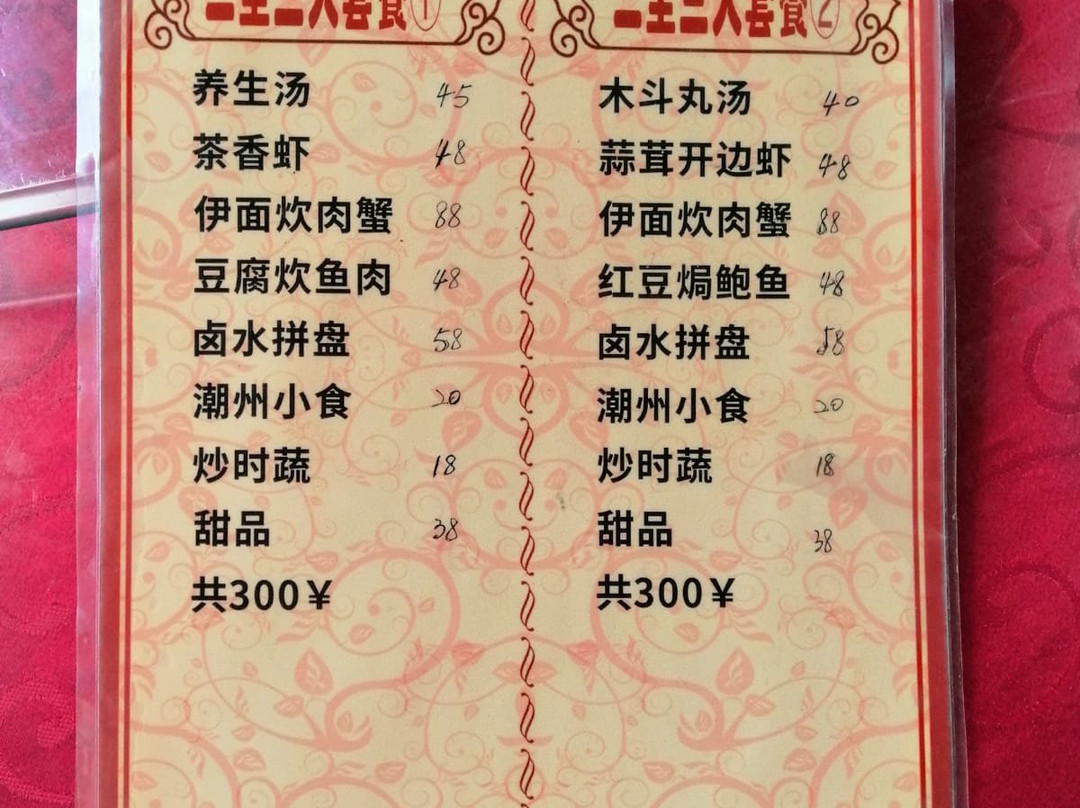 人套餐①
养生汤 45
茶香虾 48
伊面炊肉蟹 88
豆腐炊鱼肉 48
卤水拼盘 58
潮州小食 20
炒时蔬 18
甜品 38
共300￥
人套餐②
木斗丸汤 40
蒜茸开边虾 48
伊面炊肉蟹 88
红豆焗鲍鱼 48
卤水拼盘 58
潮州小食 20
炒时蔬 18
甜品 38
共300￥